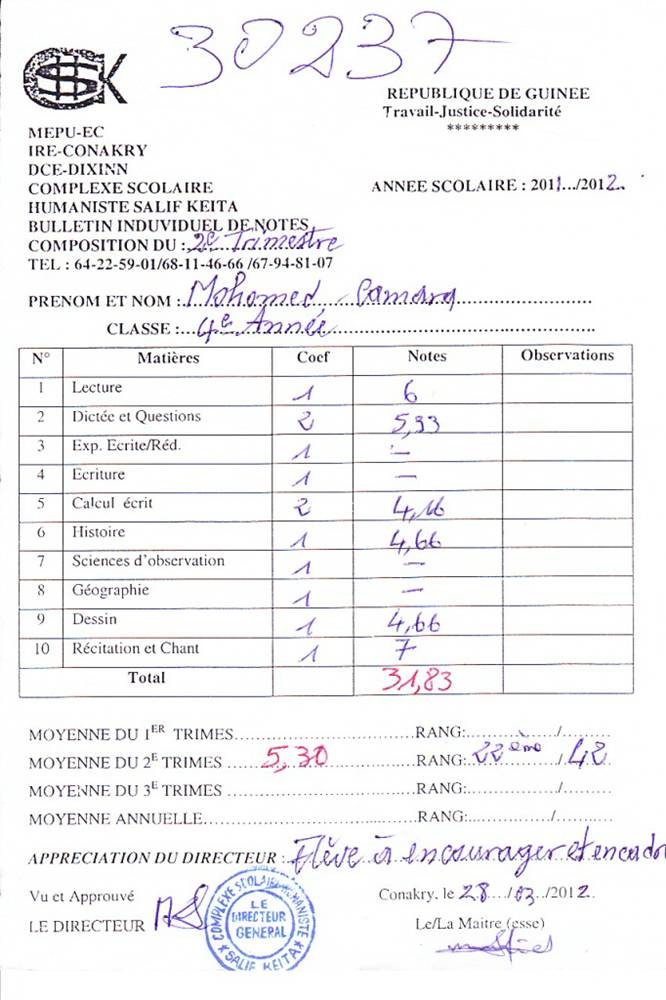 30237
REPUBLIQUE DE GUINEE
Travail-Justice-Solidarité
*********
MEPU-EC
IRE-CONAKRY
DCE-DIXINN
COMPLEXE SCOLAIRE
ANNEE SCOLAIRE : 2011../2012.
HUMANISTE SALIF KEITA
BULLETIN INDUVIDUEL DE NOTES
COMPOSITION DU : 2e Trimestre
TEL : 64-22-59-01/68-11-46-66 /67-94-81-07
PRENOM ET NOM : Mohomed Camara
CLASSE : 4e Année
N° Matières Coef Notes Observations
1 Lecture 1 6
2 Dictée et Questions 2 5,33
3 Exp. Ecrite/Réd. 1 –
4 Ecriture 1 –
5 Calcul écrit 2 4,16
6 Histoire 1 4,66
7 Sciences d'observation 1 –
8 Géographie 1 –
9 Dessin 1 4,66
10 Récitation et Chant 1 7
Total 31,83
MOYENNE DU 1ER TRIMES......RANG:....../......
MOYENNE DU 2E TRIMES ......5,30......RANG: 22ème / 42
MOYENNE DU 3E TRIMES ......RANG:....../......
MOYENNE ANNUELLE......RANG:....../......
APPRECIATION DU DIRECTEUR : Elève à encourager et encadr
Vu et Approuvé
Conakry, le 28 /03 /2012
LE DIRECTEUR
Le/La Maitre (esse)
COMPLEXE SCOLAIRE HUMANISTE
LE
DIRECTEUR
GENERAL
* SALIF KEITA *